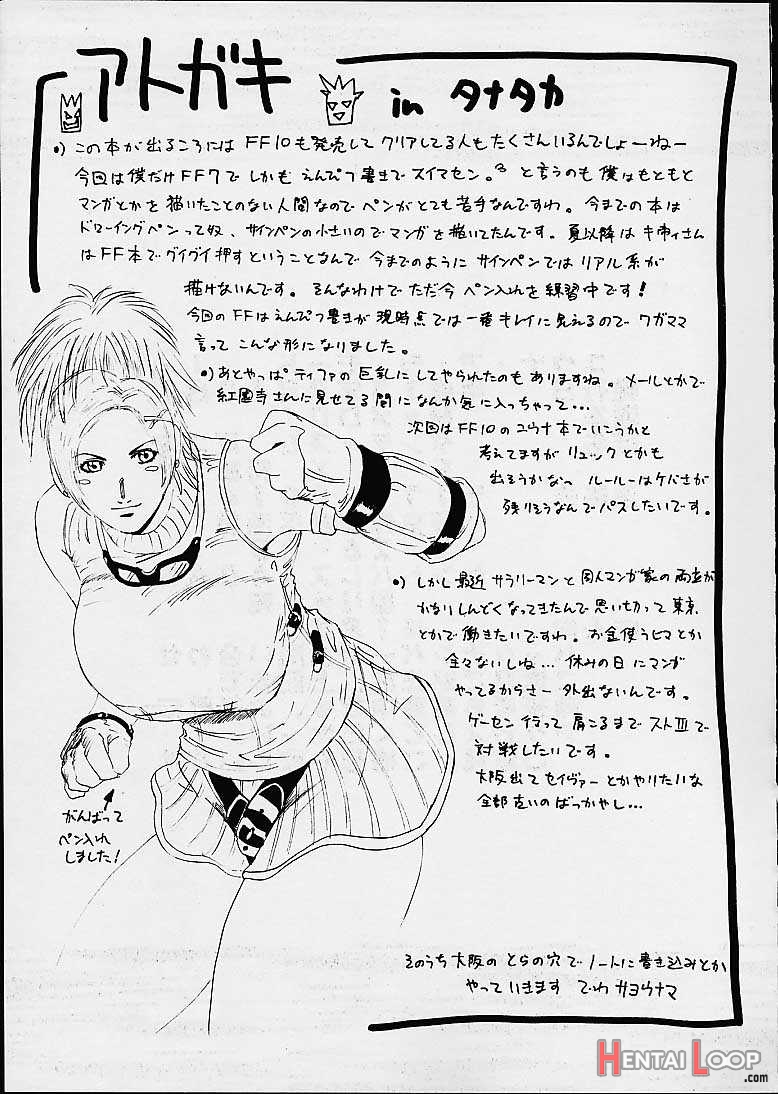 アトガキ
in タナタカ
•) この本が出るころには FF10も発売して クリアしてる人もたくさんいるんでしょーねー
今回は僕だけFF7でしかもえんぴつ書きでスイマセン。と言うのも僕はもともと
マンガとかを描いたことのない人間なのでペンがとても苦手なんですわ。今までの本は
ドローイングペンって奴、サインペンの小さいのでマンガを描いてたんです。夏以降は キ帝ィさん
はFF本でグイグイ押すということなんで 今までのように サインペンでは リアル系が
描けないんです。そんなわけでただ今 ペン入れを練習中です!
今回のFFはえんぴつ書きが 現時点では一番キレイに見えるので ワガママ
言って こんな形になりました。
•) あとやっぱ ティファの巨乳に してやられたのもありますね。メールとかで
紅國寺さんに見せてる間になんか気に入っちゃって…
次回はFF10のユウナ本でいこうかと
考えてますが リュックとかも
出ろうかなっ ルールーはケバさが
残りそうなんでパスしたいです。
•) しかし最近 サラリーマンと同人マンガ家の両立が
かなりしんどくなってきたんで思い切って東京
とかで働きたいですわ。お金使うヒマとか
全々ないしね… 休みの日にマンガ
やってるからさー 外出ないんです。
ゲーセン行って 肩こるまで ストⅢで
対戦したいです。
大阪出てセイヴァーとかやりたいな
全部古いのばっかやし…
がんばって
ペン入れ
しました!
そのうち大阪の とらの穴で ノートに書き込みとか
やって いきます でわ サヨウナマ
HENTAI LOOP
.com